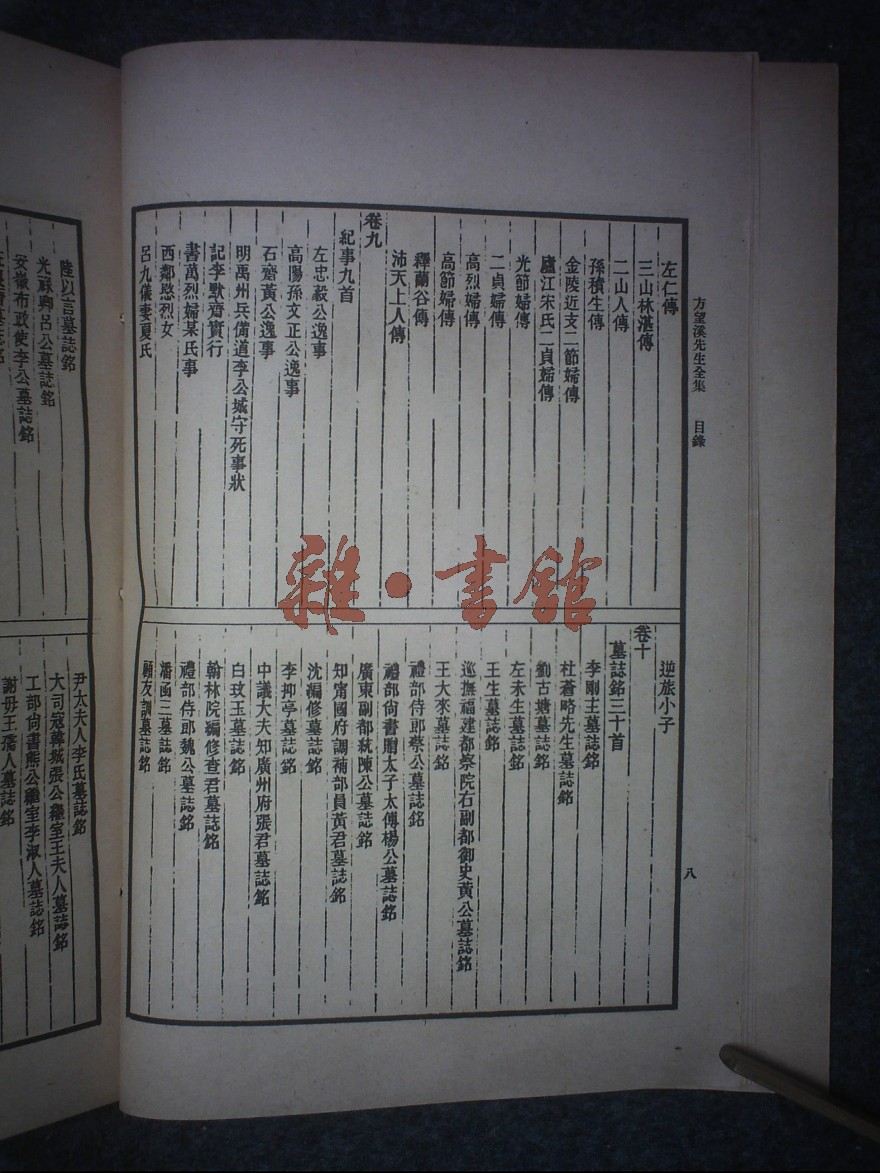 方望溪先生全集 目錄
八
左仁傳
三山林湛傳
二山人傳
孫積生傳
金陵近支二節婦傳
廬江宋氏二貞婦傳
光節婦傳
二貞婦傳
高烈婦傳
高節婦傳
釋蘭谷傳
沛天上人傳
卷九
紀事九首
左忠毅公逸事
高陽孫文正公逸事
石齋黃公逸事
明禹州兵備道李公城守死事狀
記李默齋實行
書萬烈婦某氏事
西鄰愍烈女
呂九儀妻夏氏
逆旅小子
卷十
墓誌銘三十首
李剛主墓誌銘
杜蒼略先生墓誌銘
劉古塘墓誌銘
左未生墓誌銘
王生墓誌銘
巡撫福建都察院右副都御史黃公墓誌銘
王大來墓誌銘
禮部侍郎蔡公墓誌銘
禮部尙書贈太子太傅楊公墓誌銘
廣東副都統陳公墓誌銘
知甯國府調補部員黃君墓誌銘
沈編修墓誌銘
李抑亭墓誌銘
中議大夫知廣州府張君墓誌銘
白玟玉墓誌銘
翰林院編修查君墓誌銘
禮部侍郎魏公墓誌銘
潘函三墓誌銘
顧友訓墓誌銘
陸以言墓誌銘
光祿卿呂公墓誌銘
安徽布政使李公墓誌銘
尹太夫人李氏墓誌銘
大司寇韓城張公繼室王夫人墓誌銘
工部尙書熊公繼室李淑人墓誌銘
謝母王孺人墓誌銘
雜·書館